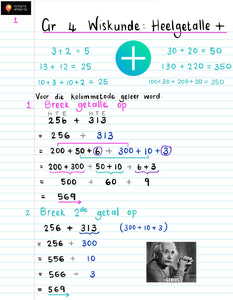 1
Gr 4 Wiskunde: Heelgetalle +
3 + 2 = 5
13 + 12 = 25
10 + 3 + 10 + 2 = 25
30 + 20 = 50
130 + 220 = 350
100 + 30 + 200 + 20 = 350
Voor die kolommetode geleer word:
1. Breek getalle op
HTE HTE
256 + 313
= 256 + 313
= 200 + 50 + 6 + 300 + 10 + 3
= 200 + 300 + 50 + 10 + 6 + 3
= 500 + 60 + 9
= 569
2. Breek 2de getal op
256 + 313 (300 + 10 + 3)
= 256 + 300
= 556 + 10
= 566 + 3
= 569
#GENIUS